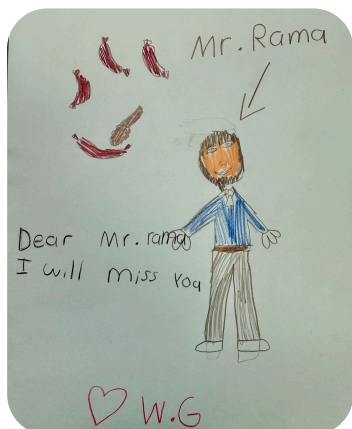 Mr. Rama
Dear Mr. rama
I will miss You
W.G